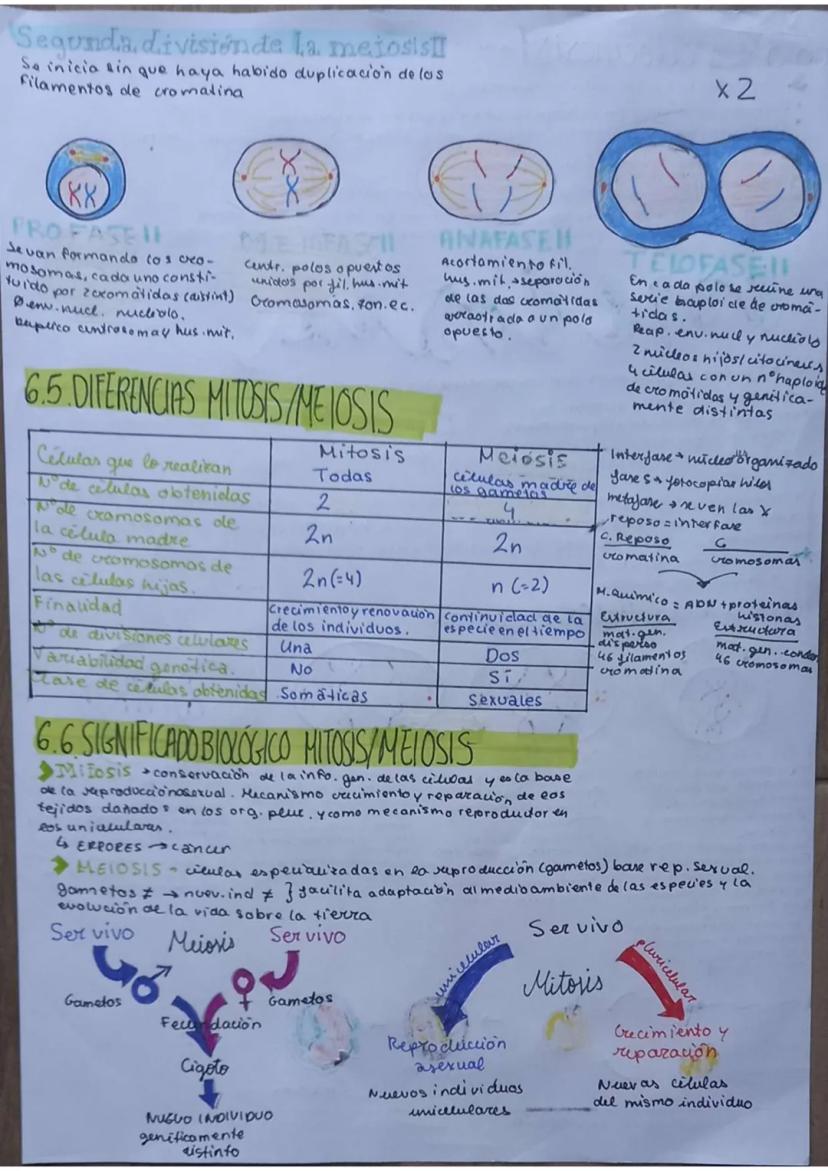 Segunda división de la meiosis II
Se inicia sin que haya habido duplicación de los
filamentos de cromatina
x 2
PROFASE II
Se van formando los cro-
mosomas, cada uno consti-
tuido por 2 cromátidas (distint)
Ø env. nucl. nucleolo.
duplica centrosoma y hus. mit.
METAFASE II
Centr. polos opuestos
unidos por fil. hus. mit
Cromosomas. zon. ec.
ANAFASE II
Acortamiento fil.
hus. mit. → separación
de las dos cromátidas
arrastrada a un polo
opuesto.
TELOFASE II
En cada polo se reúne una
serie haploide de cromá-
tidas.
Reap. env. nucl y nucleolo
2 núcleos hijos/citocinesis
4 células con un nº haploide
de cromátidas y genética-
mente distintas
6.5. DIFERENCIAS MITOSIS/MEIOSIS
Mitosis Meiosis
Células que lo realizan Todas células madre de los gametos
Nº de células obtenidas 2 4
Nº de cromosomas de la célula madre 2n 2n
Nº de cromosomas de las células hijas. 2n (=4) n (=2)
Finalidad Crecimiento y renovación de los individuos. Continuidad de la especie en el tiempo
Nº de divisiones celulares Una Dos
Variabilidad genética. No Sí
Clase de células obtenidas Somáticas Sexuales
Interfase → núcleo organizado
fase S → fotocopiar hilos
metafase → se ven las X
reposo = interfase
C. Reposo C
cromatina cromosomas
M. Químico = ADN + proteínas
histonas
estructura estructura
mat. gen. disperso mat. gen. conden
46 filamentos 46 cromosomas
cromatina
6.6 SIGNIFICADO BIOLÓGICO MITOSIS/MEIOSIS
Mitosis → conservación de la info. gen. de las células y es la base
de la reproducción asexual. Mecanismo crecimiento y reparación de los
tejidos dañados en los org. plur. y como mecanismo reproductor en
los unicelulares.
↳ ERRORES → cáncer
MEIOSIS - células especializadas en la reproducción (gametos) base rep. sexual.
gametos ≠ → nuev. ind ≠ } facilita adaptación al medio ambiente de las especies y la
evolución de la vida sobre la tierra
Ser vivo Meiosis Ser vivo
♂ ♀
Gametos Gametos
Fecundación
Cigoto
NUEVO INDIVIDUO
genéticamente
distinto
Ser vivo
unicelular pluricelular
Mitosis
Reproducción
asexual
Nuevos individuos
unicelulares
Crecimiento y
reparación
Nuevas células
del mismo individuo